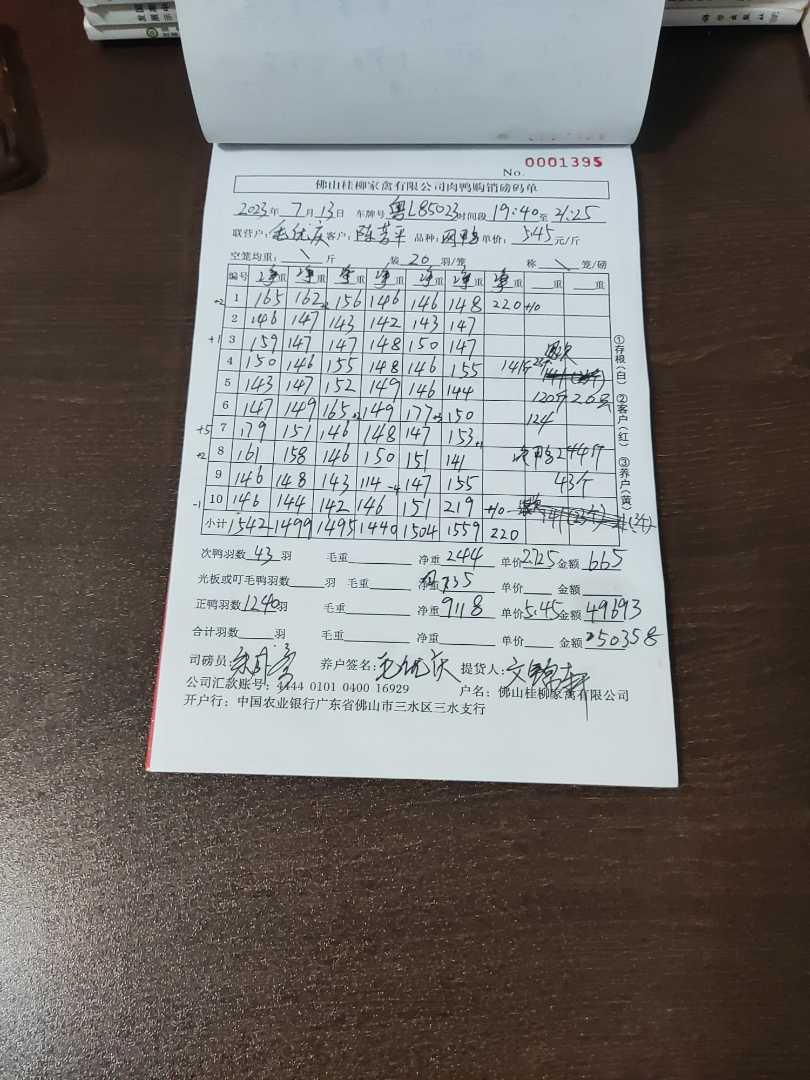 No. 0001395
佛山桂柳家禽有限公司肉鸭购销磅码单
2023年 7月 13日 车牌号 粤L85023 时间段 19:40 至 21:25
联营户: 毛优庆 客户: 陈芳平 品种: 网鸭 单价: 5.45 元/斤
空笼均重: \ 斤 装 20 羽/笼 称 \ 笼/磅
编号 净重 净重 净重 净重 净重 净重 净重 重 重
+2 1 165 162 +2 156 146 146 148 220 +10
2 146 147 143 142 143 147
+1 3 159 147 147 148 150 147
4 150 146 155 148 146 155 141斤
5 143 147 152 149 146 144 120斤 20只
6 147 149 165 +2 149 177 +3 150 124
+5 7 179 151 146 148 147 153 +1
+2 8 161 158 146 150 151 141 次鸭244斤
9 146 148 143 114 -4 147 155 43个
-1 10 146 144 142 146 151 219 +10
小计 1542 1499 1495 1440 1504 1559 220
次鸭羽数 43 羽 毛重 净重 244 单价 2.725 金额 665
光板或叮毛鸭羽数 羽 毛重 净重 单价 金额
正鸭羽数 1240 羽 毛重 净重 9118 单价 5.45 金额 49693
合计羽数 羽 毛重 净重 单价 金额 50358
司磅员: 养户签名: 毛优庆 提货人:
公司汇款账号: 4444 0101 0400 16929 户名: 佛山桂柳家禽有限公司
开户行: 中国农业银行广东省佛山市三水区三水支行
①存根(白) ②客户(红) ③养户(黄)